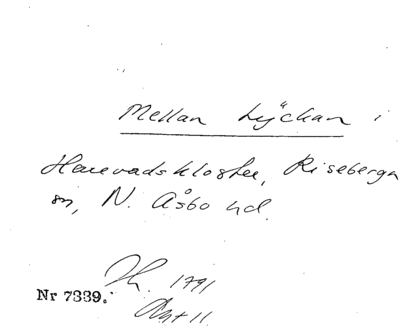 Mellan Lyckan i
Herrevadskloster, Riseberga
sn, N. Åsbo hd.
1791
Akt 11.
Nr 7339.